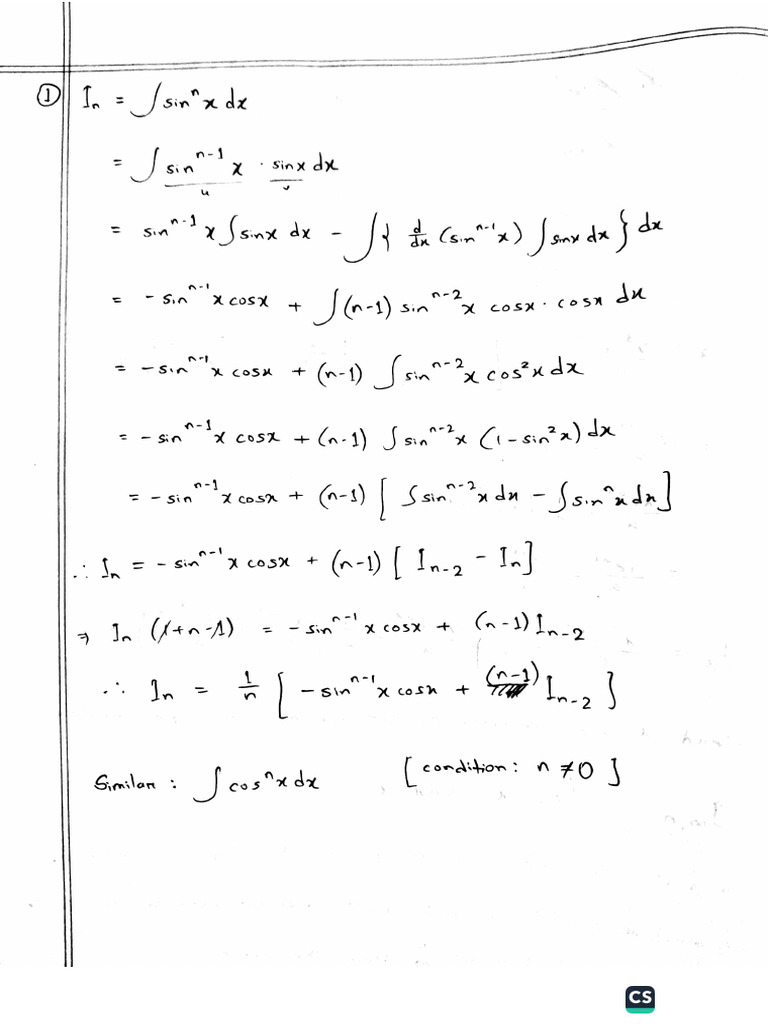 ① Iₙ = ∫ sinⁿx dx
= ∫ sinⁿ⁻¹x · sinx dx
u v
= sinⁿ⁻¹x ∫ sinx dx − ∫ { d/dx (sinⁿ⁻¹x) ∫ sinx dx } dx
= − sinⁿ⁻¹x cosx + ∫ (n-1) sinⁿ⁻²x cosx · cosx dx
= − sinⁿ⁻¹x cosx + (n-1) ∫ sinⁿ⁻²x cos²x dx
= − sinⁿ⁻¹x cosx + (n-1) ∫ sinⁿ⁻²x (1 − sin²x) dx
= − sinⁿ⁻¹x cosx + (n-1) [ ∫ sinⁿ⁻²x dx − ∫ sinⁿx dx ]
∴ Iₙ = − sinⁿ⁻¹x cosx + (n-1) [ Iₙ₋₂ − Iₙ ]
⇒ Iₙ (1+n-1) = − sinⁿ⁻¹x cosx + (n-1) Iₙ₋₂
∴ Iₙ = 1/n [ − sinⁿ⁻¹x cosx + (n-1) Iₙ₋₂ }
Similar : ∫ cosⁿx dx [ condition: n ≠ 0 ]
CS